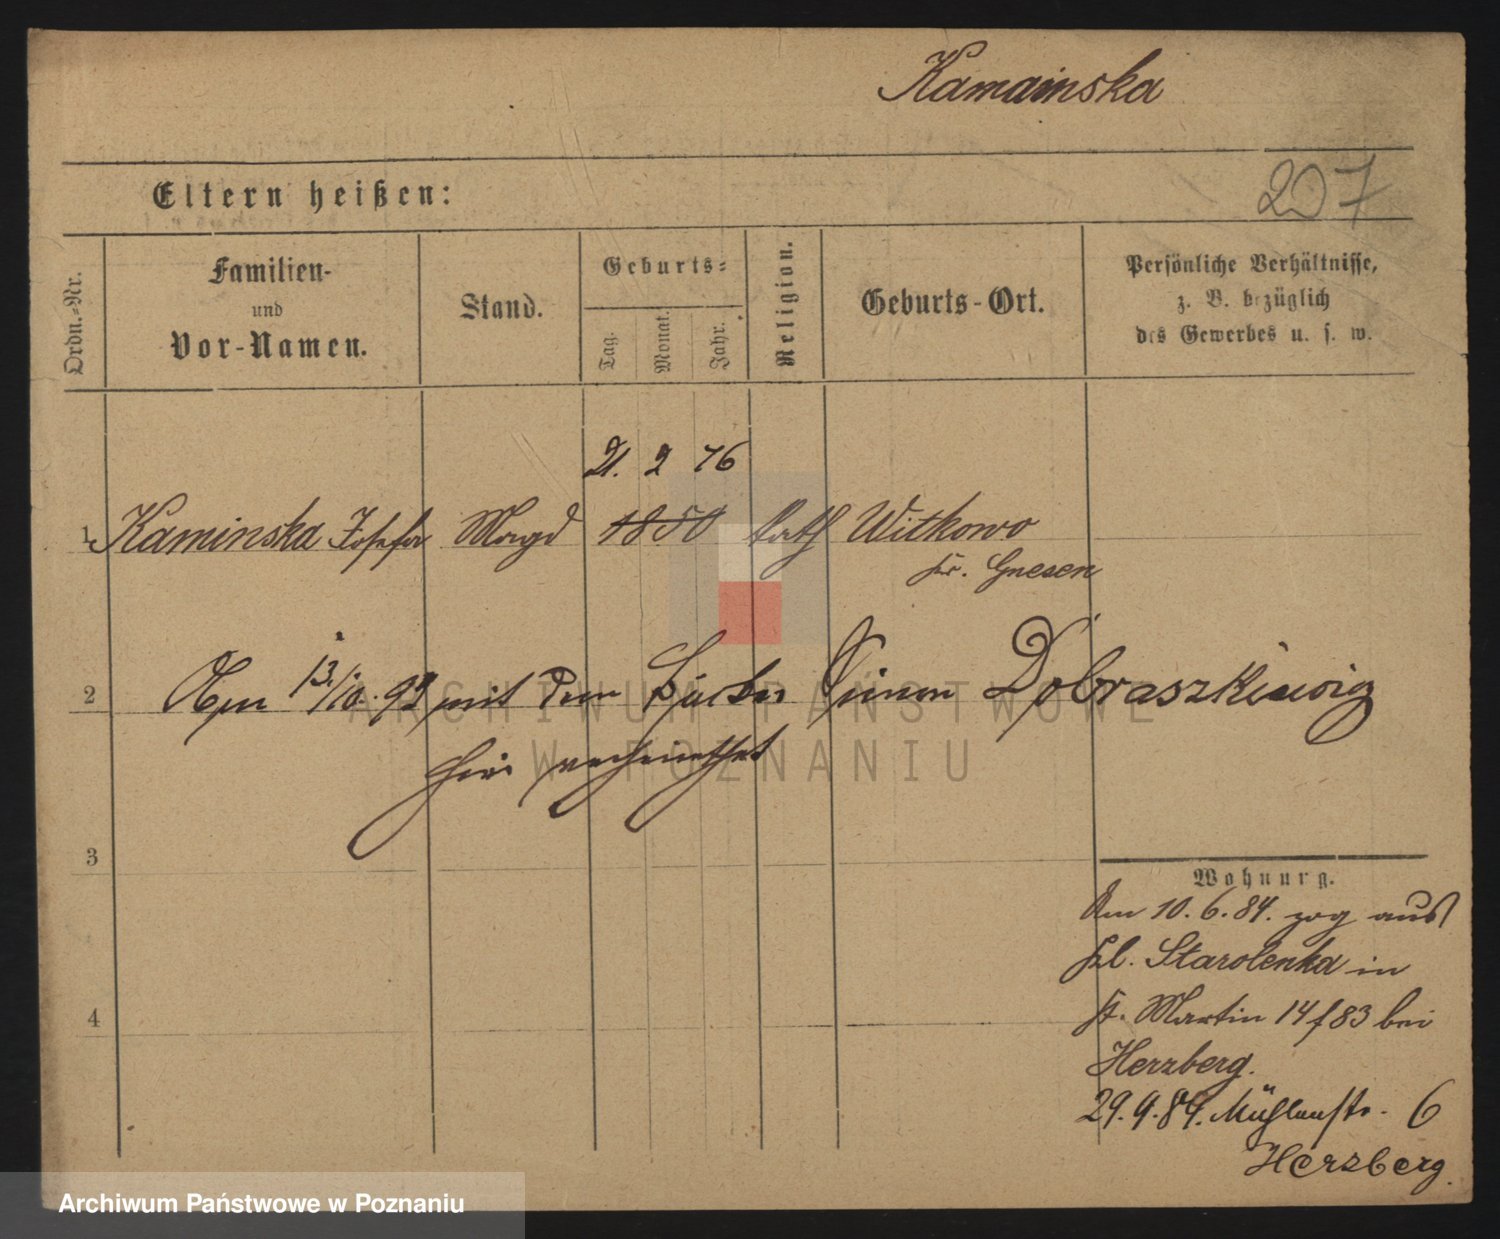 Kamainska
207
Eltern heißen:
Ordn.-Nr.
Familien-
und
Vor-Namen.
Stand.
Geburts=
Tag.
Monat.
Jahr.
Religion.
Geburts-Ort.
Persönliche Verhältnisse,
z. B. bezüglich
des Gewerbes u. s. w.
21. 2 76
1 Kaminska Josefa Magd 1850 kath Witkowo
Kr. Gnesen
2 Am 13/10. 93 mit dem Simon Dobraszkiewicz
hier verheirathet
3
Wohnung.
Am 10. 6. 84. zog aus
Kl. Starolenka in
4
St. Martin 14 f 83 bei
Herzberg.
29. 9. 89. Mühlenstr. 6
Herzberg.
ARCHIWUM PAŃSTWOWE
W POZNANIU
Archiwum Państwowe w Poznaniu